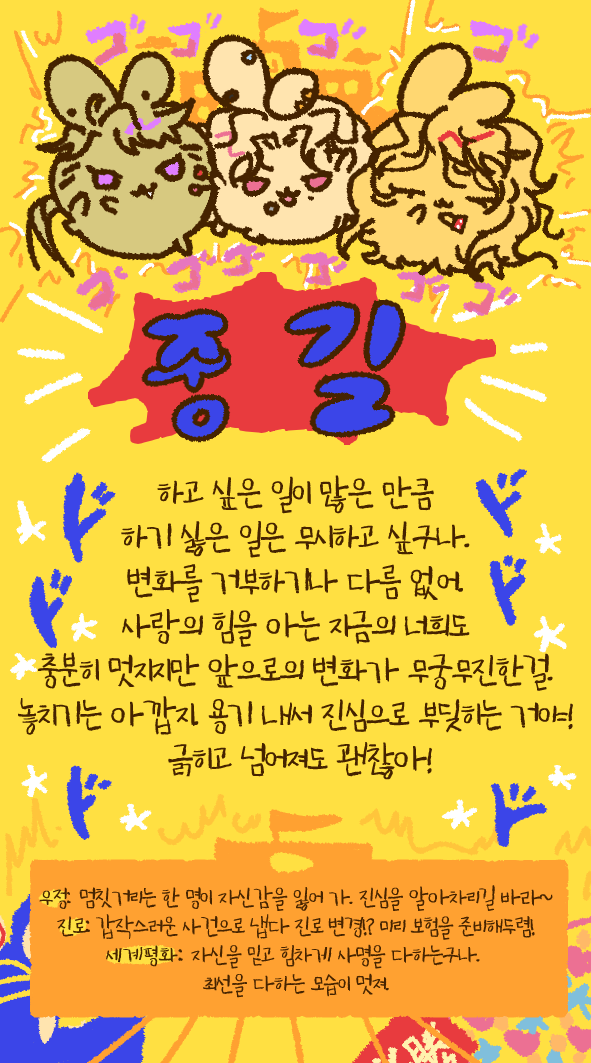 ゴ ゴ ゴ ゴ
ゴ ゴ ゴ ゴ ゴ ゴ
종 길
하고 싶은 일이 많은 만큼
하기 싫은 일은 무시하고 싶구나.
변화를 거부하기나 다름 없어.
사랑의 힘을 아는 지금의 너희도
충분히 멋지지만 앞으로의 변화가 무궁무진한걸.
놓치기는 아깝지. 용기 내서 진심으로 부딪히는 거야!
긁히고 넘어져도 괜찮아!
ド ド
ド ド
ド ド
우정: 멈칫거리는 한 명이 자신감을 잃어 가. 진심을 알아차리길 바라~
진로: 갑작스러운 사건으로 냅다 진로 변경!? 미리 보험을 준비해두렴!
세계평화: 자신을 믿고 힘차게 사명을 다하는구나.
최선을 다하는 모습이 멋져.